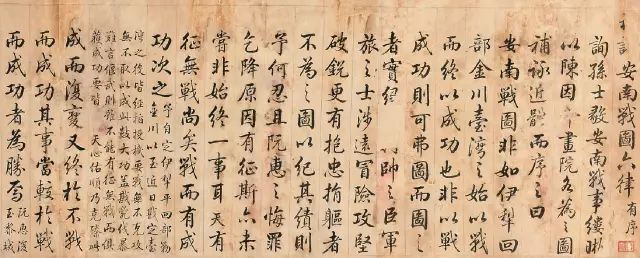 安南戰圖六律 有序
詢孫士毅安南戰事縷晰
以陳因 畫院各為之圖
補詠近體而序之曰
安南戰圖非如伊犁回
部金川臺灣之始以戰
而終以成功也非以戰
成功則可弗圖而圖之
者實紀 帥之臣軍
旅之士涉遠冒險攻堅
破銳更有抱忠捐軀者
不為之圖以紀其績則
予何忍且阮惠之悔罪
乞降原因有征斯亦未
嘗非始終一事耳天有
征無戰尚矣戰而有成
功次之
予自定伊犁平回部勦
金川以至近日戡定臺
灣之後皆 機要戰無不克攻
無不取以成 大功 伐暴
雖言偃武則殊不能有征無戰而俱
獲成功要皆 天心佑順乃克臻此
成而復變又終於不戰
而成功其事當較於戰
而成功者為勝焉
阮惠復
至黎城